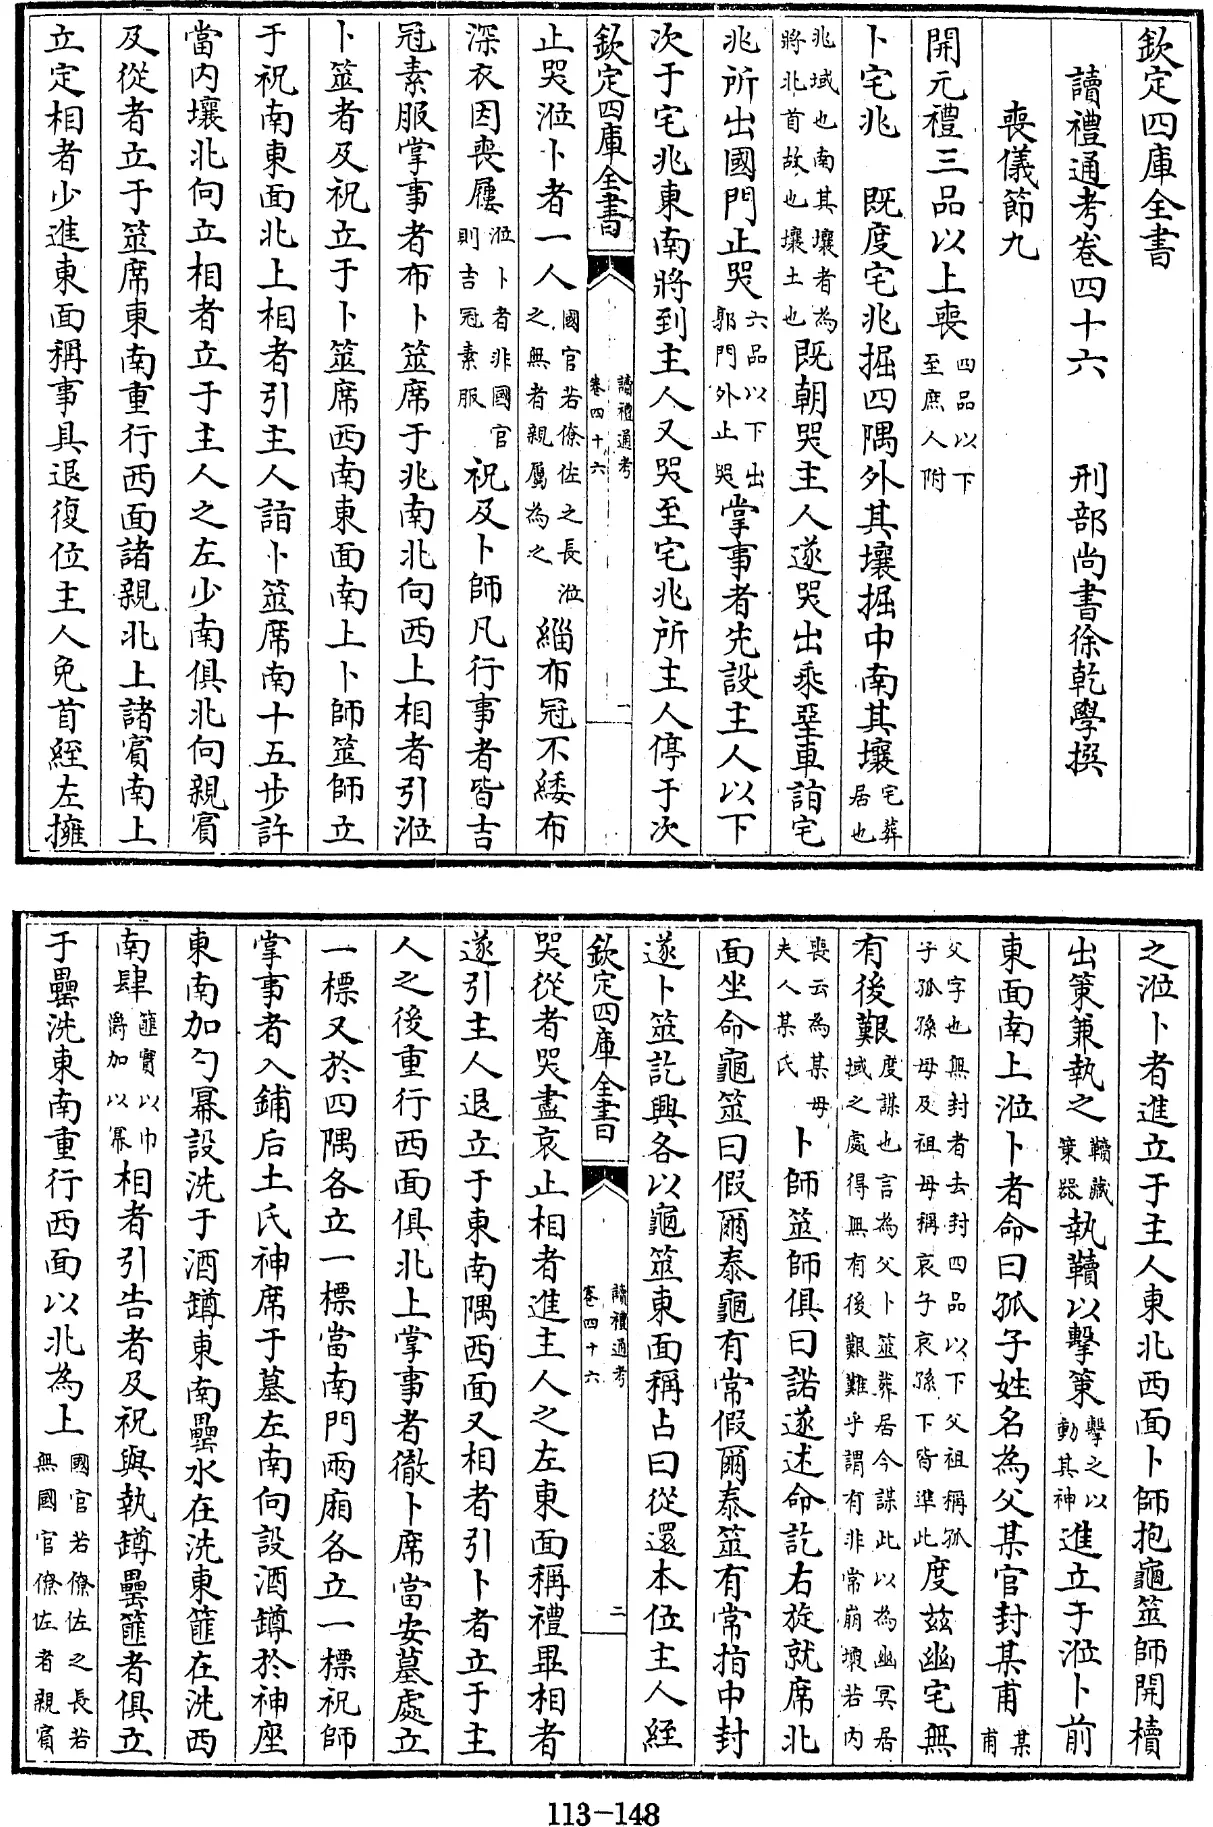 欽定四庫全書
讀禮通考卷四十六　刑部尚書徐乾學撰
喪儀節九
開元禮三品以上喪四品以下至庶人附
卜宅兆　既度宅兆掘四隅外其壤掘中南其壤宅葬居也
兆域也南其壤者為將北首故也壤土也既朝哭主人遂哭出乘堊車詣宅
兆所出國門止哭六品以下出郭門外止哭掌事者先設主人以下
次于宅兆東南將到主人又哭至宅兆所主人停于次
欽定四庫全書　讀禮通考卷四十六　一
止哭涖卜者一人國官若僚佐之長涖之無者親屬為之緇布冠不緌布
深衣因喪屨涖卜者非國官則吉冠素服祝及卜師凡行事者皆吉
冠素服掌事者布卜筮席于兆南北向西上相者引涖
卜筮者及祝立于卜筮席西南東面南上卜師筮師立
于祝南東面北上相者引主人詣卜筮席南十五步許
當內壤北向立相者立于主人之左少南俱北向親賓
及從者立于筮席東南重行西面諸親北上諸賓南上
立定相者少進東面稱事具退復位主人免首絰左擁
之涖卜者進立于主人東北西面卜師抱龜筮師開櫝
出筴兼執之韇藏筴器執韇以擊筴擊之以動其神進立于涖卜前
東面南上涖卜者命曰孤子姓名為父某官封某甫某甫
父字也無封者去封四品以下父祖稱孤子孤孫母及祖母稱哀子哀孫下皆準此度茲幽宅無
有後艱度謀也言為父卜筮葬居今謀此以為幽冥居域之處得無有後艱難乎謂有非常崩壞若內
喪云為某母夫人某氏卜師筮師俱曰諾遂述命訖右旋就席北
面坐命龜筮曰假爾泰龜有常假爾泰筮有常指中封
遂卜筮訖興各以龜筮東面稱占曰從還本位主人絰
欽定四庫全書　讀禮通考卷四十六　二
哭從者哭盡哀止相者進主人之左東面稱禮畢相者
遂引主人退立于東南隅西面又相者引卜者立于主
人之後重行西面俱北上掌事者徹卜席當安墓處立
一標又於四隅各立一標當南門兩廂各立一標祝師
掌事者入鋪后土氏神席于墓左南向設酒罇於神座
東南加勺冪設洗于酒罇東南罍水在洗東篚在洗西
南肆篚實以巾爵加以冪相者引告者及祝與執罇罍篚者俱立
于罍洗東南重行西面以北為上國官若僚佐之長若無國官僚佐者親賓
113-148